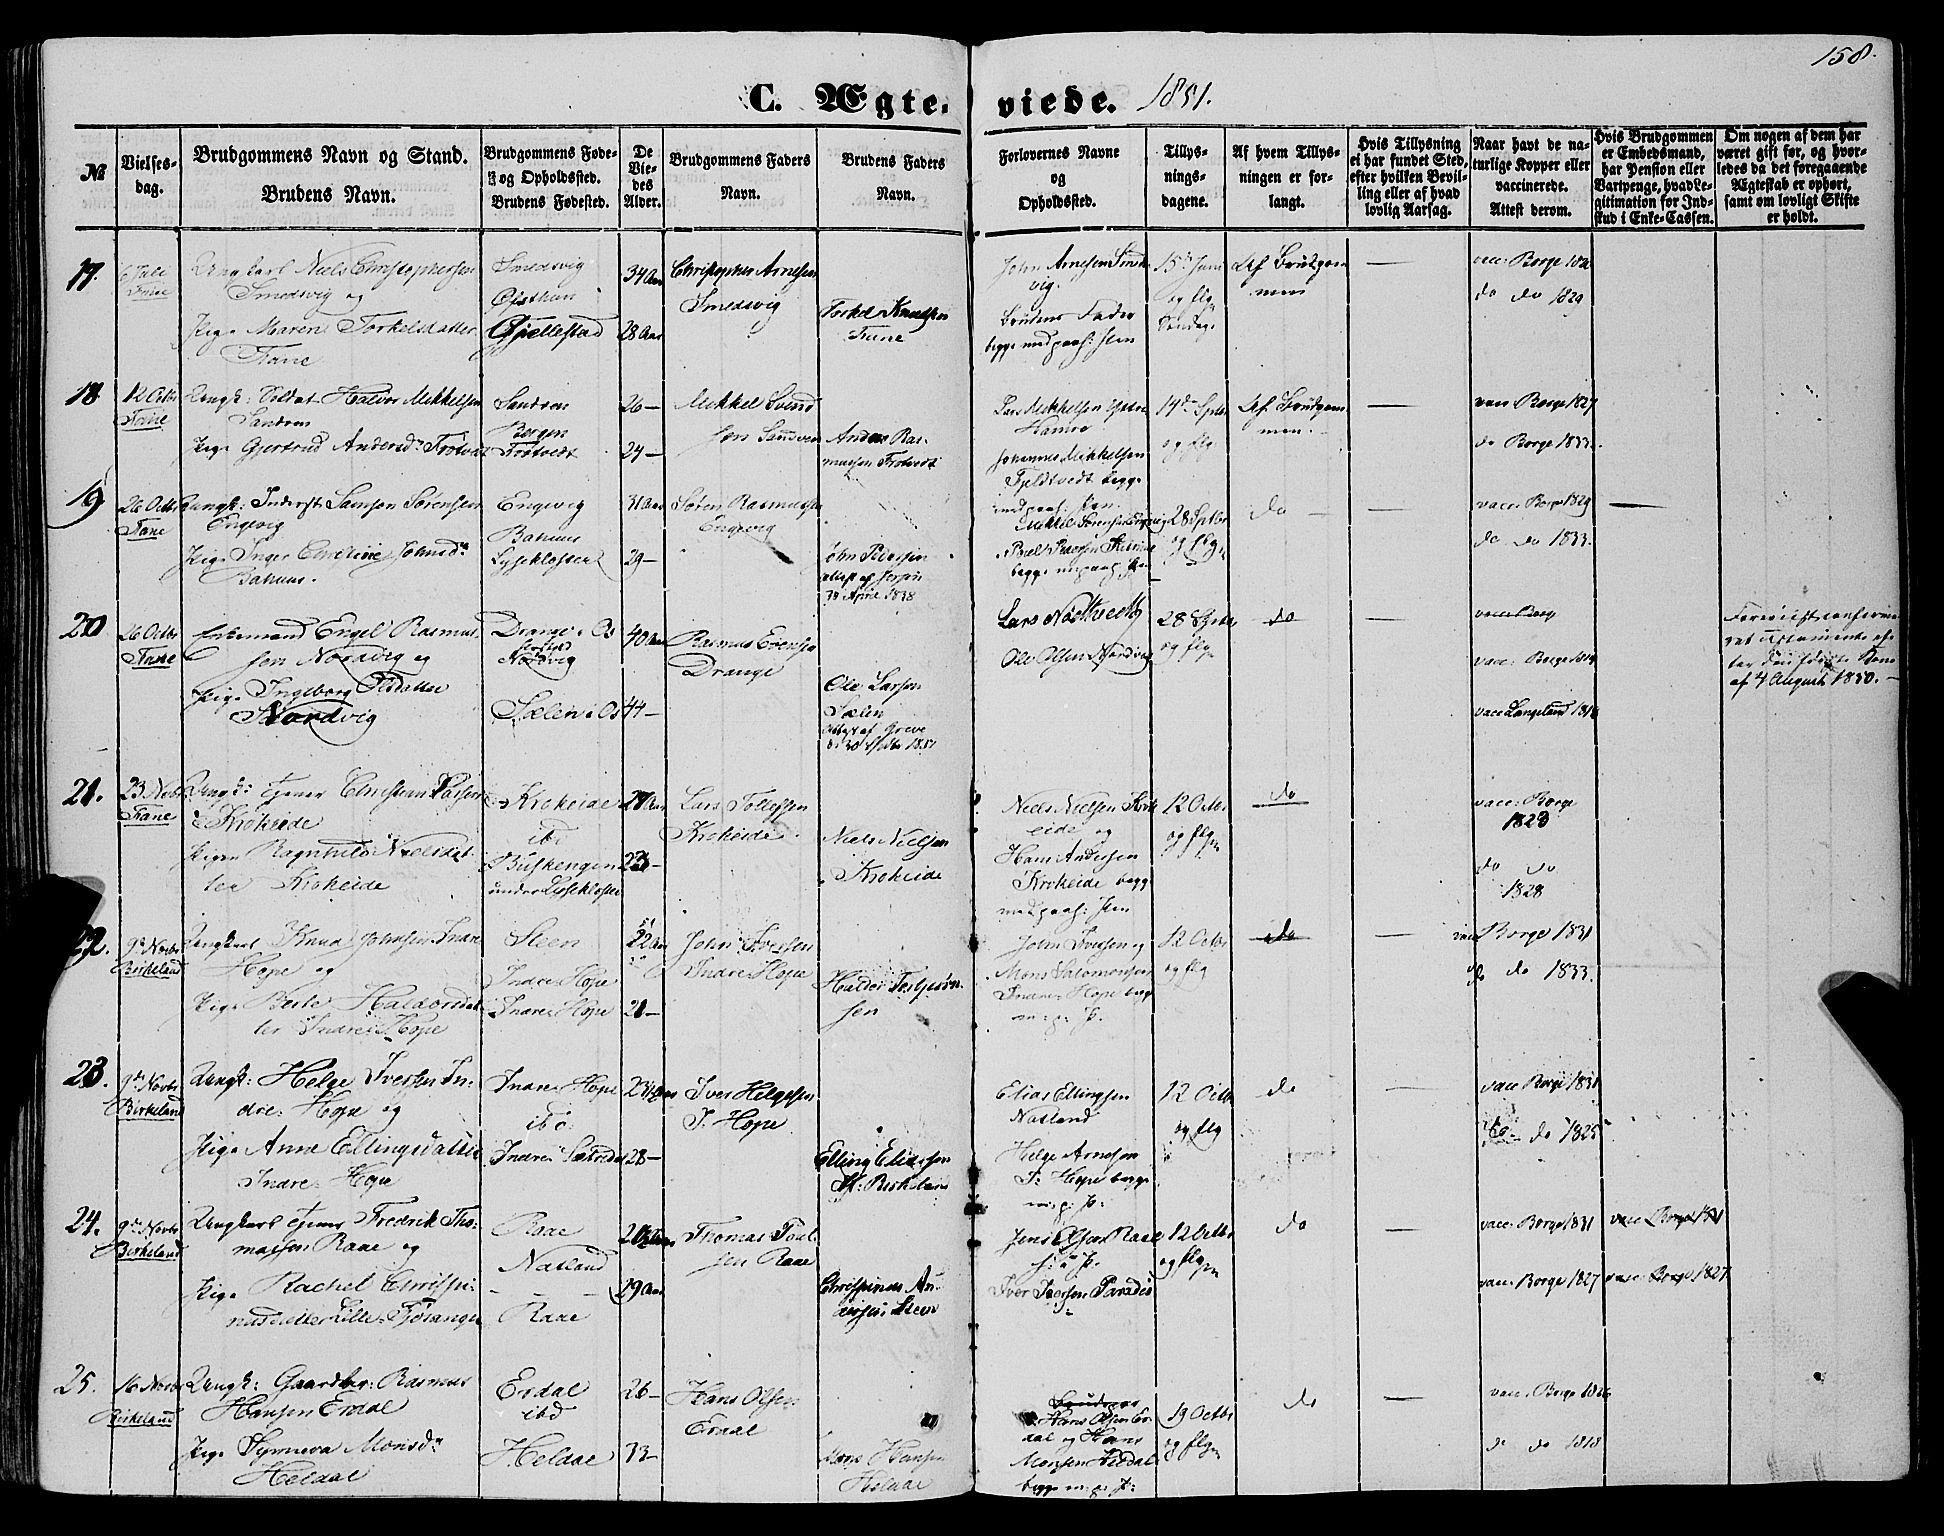 158.
C. Ægte-viede. 1851.
№
Vielses-
dag.
Brudgommens Navn og Stand.
Brudens Navn.
Brudgommens Føde-
og Opholdssted.
Brudens Fødested.
De
Vie-
des
Alder.
Brudgommens Faders
Navn.
Brudens Faders
Navn.
Forlovernes Navne
og
Opholdssted.
Tillys-
nings-
dagene.
Af hvem Tillys-
ningen er for-
langt.
Hvis Tillysning
ei har fundet Sted,
efter hvilken Bevil-
ling eller af hvad
lovlig Aarsag.
Naar havt de na-
turlige Kopper eller
vaccinerede.
Attest derom.
Hvis Brudgommen
er Embedsmand,
har Pension eller
Vartpenge, hvad Le-
gitimation for Ind-
skud i Enke-Cassen.
Om nogen af dem har
været gift før, og hvor-
ledes da det foregaaende
Ægteskab er ophørt,
samt om lovligt Skifte
er holdt.
17.
6 Juli
Fane
Ungkarl Niels Christophersen
Smedsvig og
Pige Maren Torkelsdatter
Fane
Smedsvig
Gjellestad
34 Aar
28 Aar
Christopher Arnesen
Smedsvig
Torkel Knudsen
Fane
John Arnesen Smeds
vig.
Brudens Fader
15de Juni
og flg
Søndage
Af Brudgom
men
—
vacc: Borge
do do 1829
18
12 Octbr
Fane
Ungk: Soldat Halvor Mikkelsen
Sandven
Pige Gjertrud Andersdr Trotvedt
Sandven
Bergen
Trotvedt
26 —
24 —
Mikkel Svend
sen Sandven
Anders Ras-
mussen Trotvedt
Lars Mikkelsen
Johannes Mikkelsen
begge
14de Sptbr
og flg
Af Brudgom
men.
—
vacc Borge 1827
do Borge 1833.
19
26 Octbr
Fane
Ungk: Inderst Samson Sørensen
Engevig
Pige Inger Christine Johnsdr
Bahuus.
Engevig
Bahuus
Lysekloster
31 Aar
29 —
Søren Rasmussen
Engevig
John Pedersen
April 1838
28 Sptbr
og flg
do —
—
vacc. Borge 1829
do do 1833.
—
20
26 Octbr
Fane
Enkemand Engel Rasmus-
sen Nordvig og
Pige Ingeborg Olsdatter
Nordvig
Drange i Os
Nordvig
Sælen i Os
40 Aar
44 —
Rasmus
Drange
Ole Larsen
Sælen
Attest af Greve
Lars
Ole Olsen Nordvig
28 Sptbr
og flg
do
—
vacc Borg
vacc: Borge 1819
vacc Langeland 1818
af 4 August 1850. —
21.
23 Novbr
Fane
Ungk: Tjener Christian Larsen
Krokeide
Pigen Ragnhild Nielsdat
ter Krokeide
Krokeide
ibd
Buskengen
under Lysekloster
27 Aar
23 —
Lars Tollefsen
Krokeide
Niels Nielsen
Krokeide
Niels Nielsen Krok
eide og
Hans Andersen
Krokeide begge
12 Octbr
og flg
do
vacc: Borge
1823
do do
1828
22.
9de Novbr
Birkeland
Ungkarl Knud Johnsen Indre
Hope og
Pige Berte Haldorsdat
ter Indre Hope
Steen
Indre Hope
Indre Hope
22 Aar
21 —
John Iversen
Indre Hope
Haldor Torbjørn-
sen
John Iversen og
Mons Salomonsen
Indre Hope begge
12 Octbr
og flg
do
—
vacc Borge 1831
do do 1833.
23.
9de Novbr
Birkeland
Ungk: Helge Iversen In-
dre Hope og
Pige Anne Ellingsdatter
Indre Hope
Indre Hope
ibd
Indre Sætredal
23 Aar
28 —
Iver Helgesen
I. Hope
Elling Eliasen
St: Birkeland
Elias Ellingsen
Natland
Helge Arnesen
I: Hope begge
12 Octbr
og flg
do
—
vacc Borge 1831
do do 1825
24.
9de Novbr
Birkeland
Ungkarl Tjener Fredrik Tho-
massen Raae og
Pige Rachel Christi-
nasdatter Lille Fjøsanger
Raae
Natland
Raae
29 Aar
Thomas Poul-
sen Raae
Christinus An-
dersen Steen
Jens Olsen Raae
Iver Iversen Paradis
12 Octbr
og flg
do
—
vacc: Borge 1831
vacc Borge 1831
vacc: Borge 1827
vacc: Borge 1827
25.
16 Novbr
Birkeland
Ungk: Gaardbr: Rasmus
Hansen Erdal
Pige Synneva Monsdr
Heldal
Erdal
ibd
Heldal
26 —
33 —
Hans Olsen
Erdal
Mons Hansen
Heldal
Hans Olsen Er
dal og Hans
Monsen Heldal
19 Octbr
og flg
do
—
vacc. Borge
do do 1818